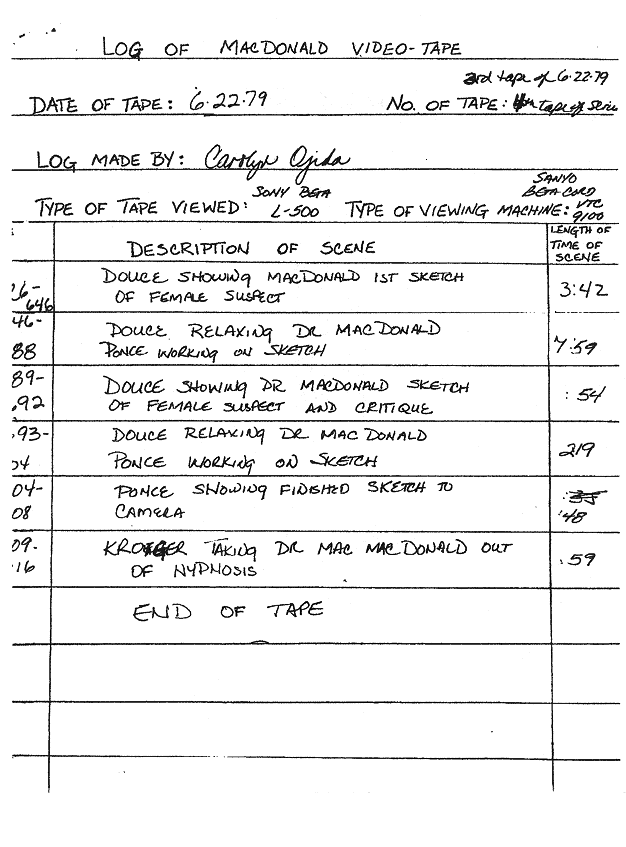 LOG OF MACDONALD VIDEO-TAPE
3rd tape of 6.22.79
DATE OF TAPE: 6.22.79 NO. OF TAPE: 4th tape of series
LOG MADE BY: Carolyn Ojeda
SONY BETA SANYO BETA CORD
TYPE OF TAPE VIEWED: L-500 TYPE OF VIEWING MACHINE: VTC 9100
DESCRIPTION OF SCENE LENGTH OF TIME OF SCENE
DOUCE SHOWING MACDONALD 1ST SKETCH
26-646 OF FEMALE SUSPECT 3:42
46- DOUCE RELAXING DR MACDONALD
88 PONCE WORKING ON SKETCH 7:59
89- DOUCE SHOWING DR MACDONALD SKETCH
.92 OF FEMALE SUSPECT AND CRITIQUE :54
.93- DOUCE RELAXING DR MAC DONALD
04 PONCE WORKING ON SKETCH 219
04- PONCE SHOWING FINISHED SKETCH TO
08 CAMERA :48
09- KROEGER TAKING DR MAC MAC DONALD OUT
.16 OF HYPNOSIS :59
END OF TAPE